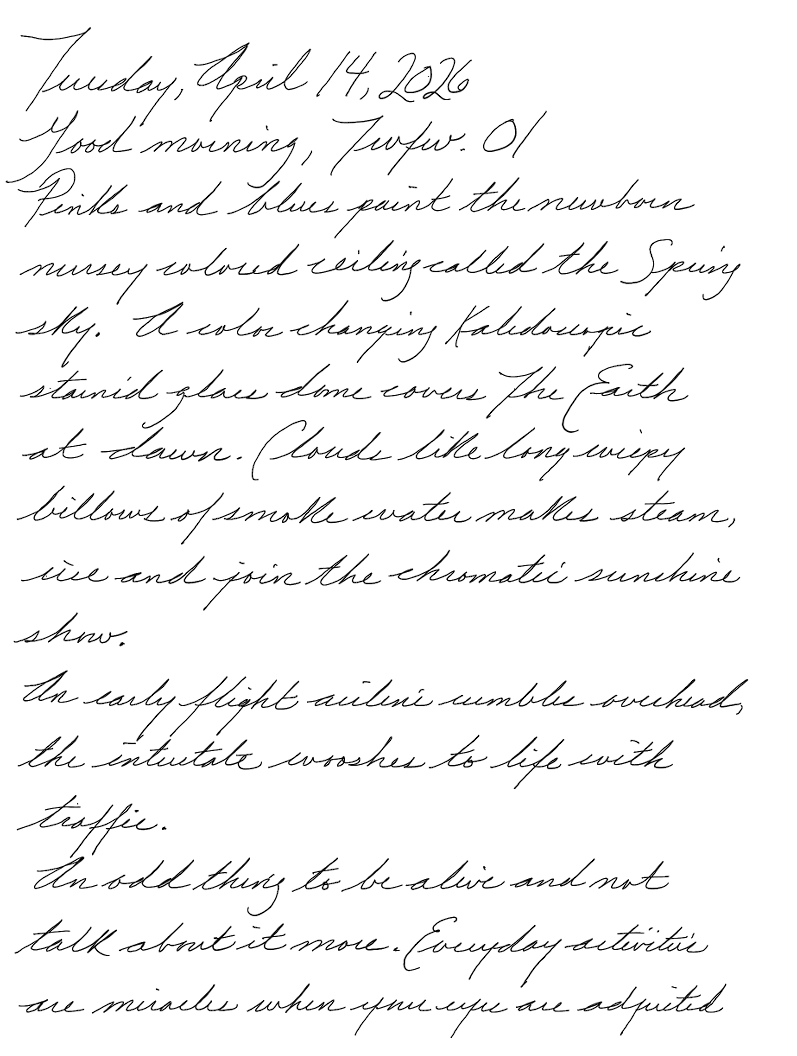 Tuesday, April 14, 2026
Good morning, Twfw. 01
Pinks and blues paint the newborn
nursey colored ceiling called the Spring
sky. A color changing Kaledoscopic
stained glass dome covers The Earth
at dawn. Clouds like long wispy
billows of smoke water makes steam,
rise and join the chromatic sunshine
show.
An early flight airline rumbles overhead,
the interstate wooshes to life with
traffic.
An odd thing to be alive and not
talk about it more. Everyday activities
are miracles when your eyes are adjusted